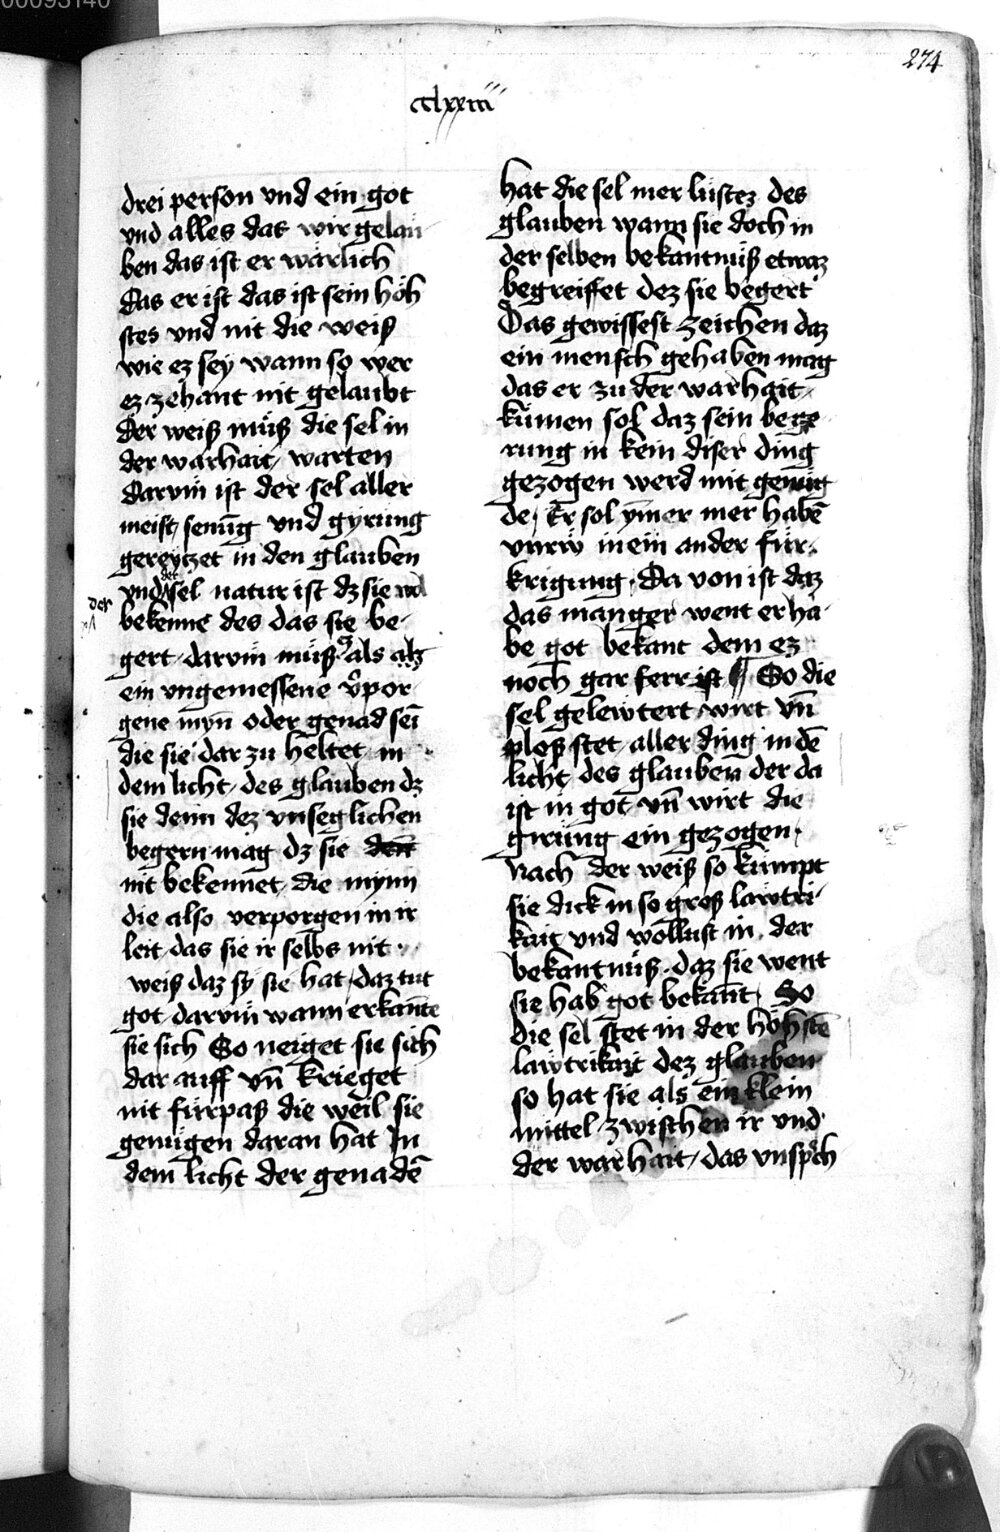 00093140
274
cclxxiiii
drei person vnd ein got
vnd alles das wir gelau
ben das ist er wärlich
Das er ist das ist sein höh
stes vnd nit die weiß
wie ez sey wann so wer
ez zehant nit gelaubt
Der weiß müß die sel in
der warhait warten
Darvm̈ ist der sel aller
meist senūg vnd gyrung
gereytzet in den glauben
vnd der sel natur ist dz sie wol
der
bekenne des das sie be
gert darvm müß als
ein vngemessene v̉por
gene myn̄ oder genad sei
die sie dar zu heltet in
dem licht des glauben dz
sie denn dez vnseglichen
begern mag dz sie den̄
nit bekennet die mynn
die also verporgen in ir
leit das sie ir selbs nit
weiß daz sy sie hat daz tut
got darvm̈ wann erkan̄te
sie sich So neiget sie sich
dar auff vn̄ krieget
nit fürpaß die weil sie
genügen daran hat In
dem licht der genadē
hat die sel mer lüstez des
glauben wann sie doch in
der selben bekantnüß etwaz
begreiffet dez sie begert
Das gewissest zeichen daz
ein mensch gehaben mag
das er zu der warhait
kümen sol daz sein bege
rung in kein diser ding
gezogen werd mit genüg
de Er sol ym̄er mer habē
vnrw in ein ander für
krigung Da von ist daz
das manger went er ha
be got bekant dem ez
noch gar ferr ist ¶ So die
sel gelewtert wirt vn̄
ploß stet aller ding in dē
licht des glauben der da
ist in got vn̄ wirt die
girüng ein gezogen
Nach der weiß so kümpt
sie dick in so groß lawtri
kait vnd wollust in der
bekantnüß daz sie went
sie hab got bekan̄t So
die sel stet in der höhstē
lawtrikait dez glauben
so hat sie als ein klein
mittel zwischen ir vnd
der warhait das vnsp̄ch